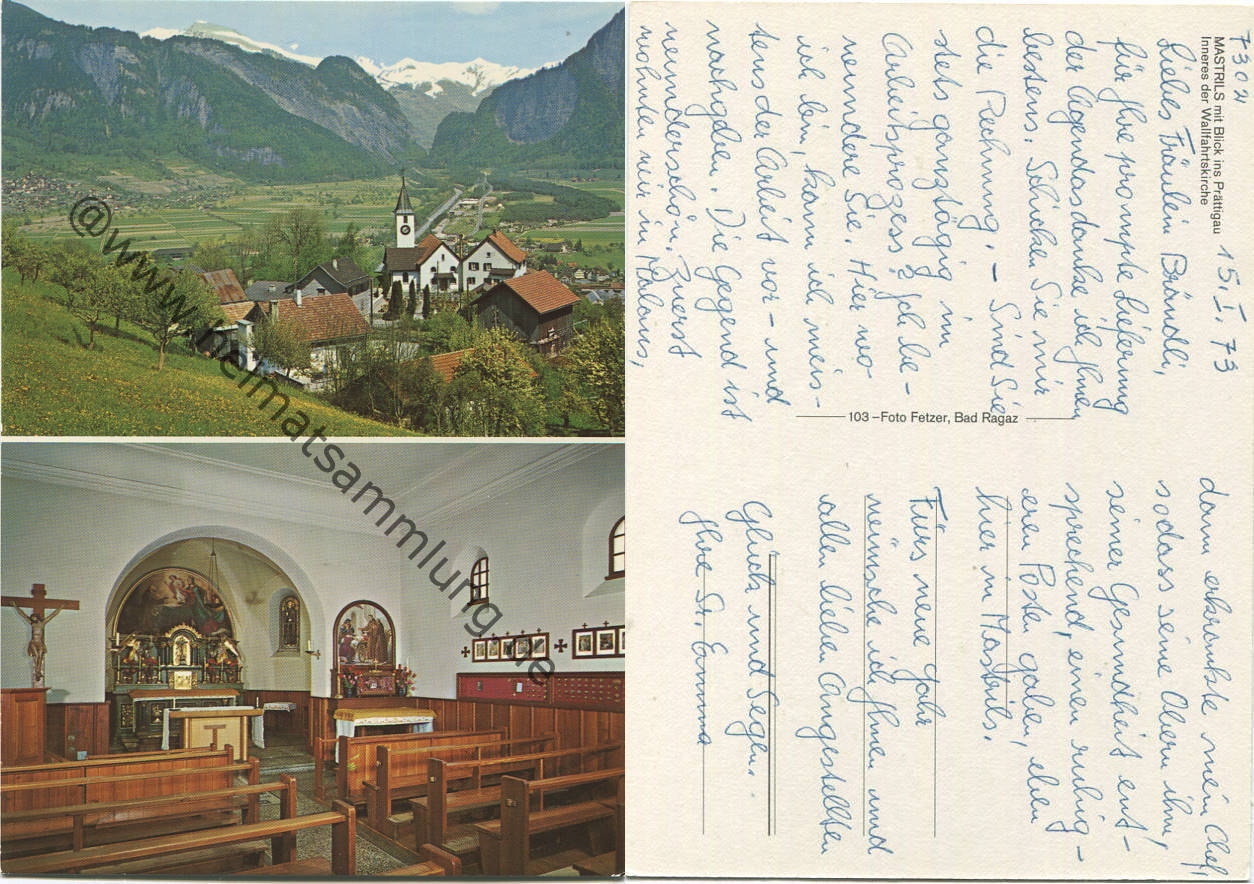 @www.heimatsammlung.de
7304
MASTRILS mit Blick ins Prättigau
Inneres der Wallfahrtskirche
15. I. 73
Liebes Fräulein Brändli,
für Ihre prompte Lieferung
der Agendas danke ich Ihnen
bestens. Schicken Sie mir
die Rechnung. – Sind Sie
stets ganztägig im
Arbeitsprozess? Ich be-
wundere Sie. Hier wo
ich bin, kann ich meis-
tens der Arbeit vor – und
nachgehen. Die Gegend ist
wunderschön. Zuerst
wohnten wir in Malans,
103 – Foto Fetzer, Bad Ragaz
dann erkrankte mein Chef,
sodass seine Obern ihm,
seiner Gesundheit ent-
sprechend, einen ruhig-
eren Posten gaben, eben
hier in Mastrils.
Fürs neue Jahr
wünsche ich Ihnen und
allen lieben Angestellten
Glück und Segen.
Ihre Sr. Emma